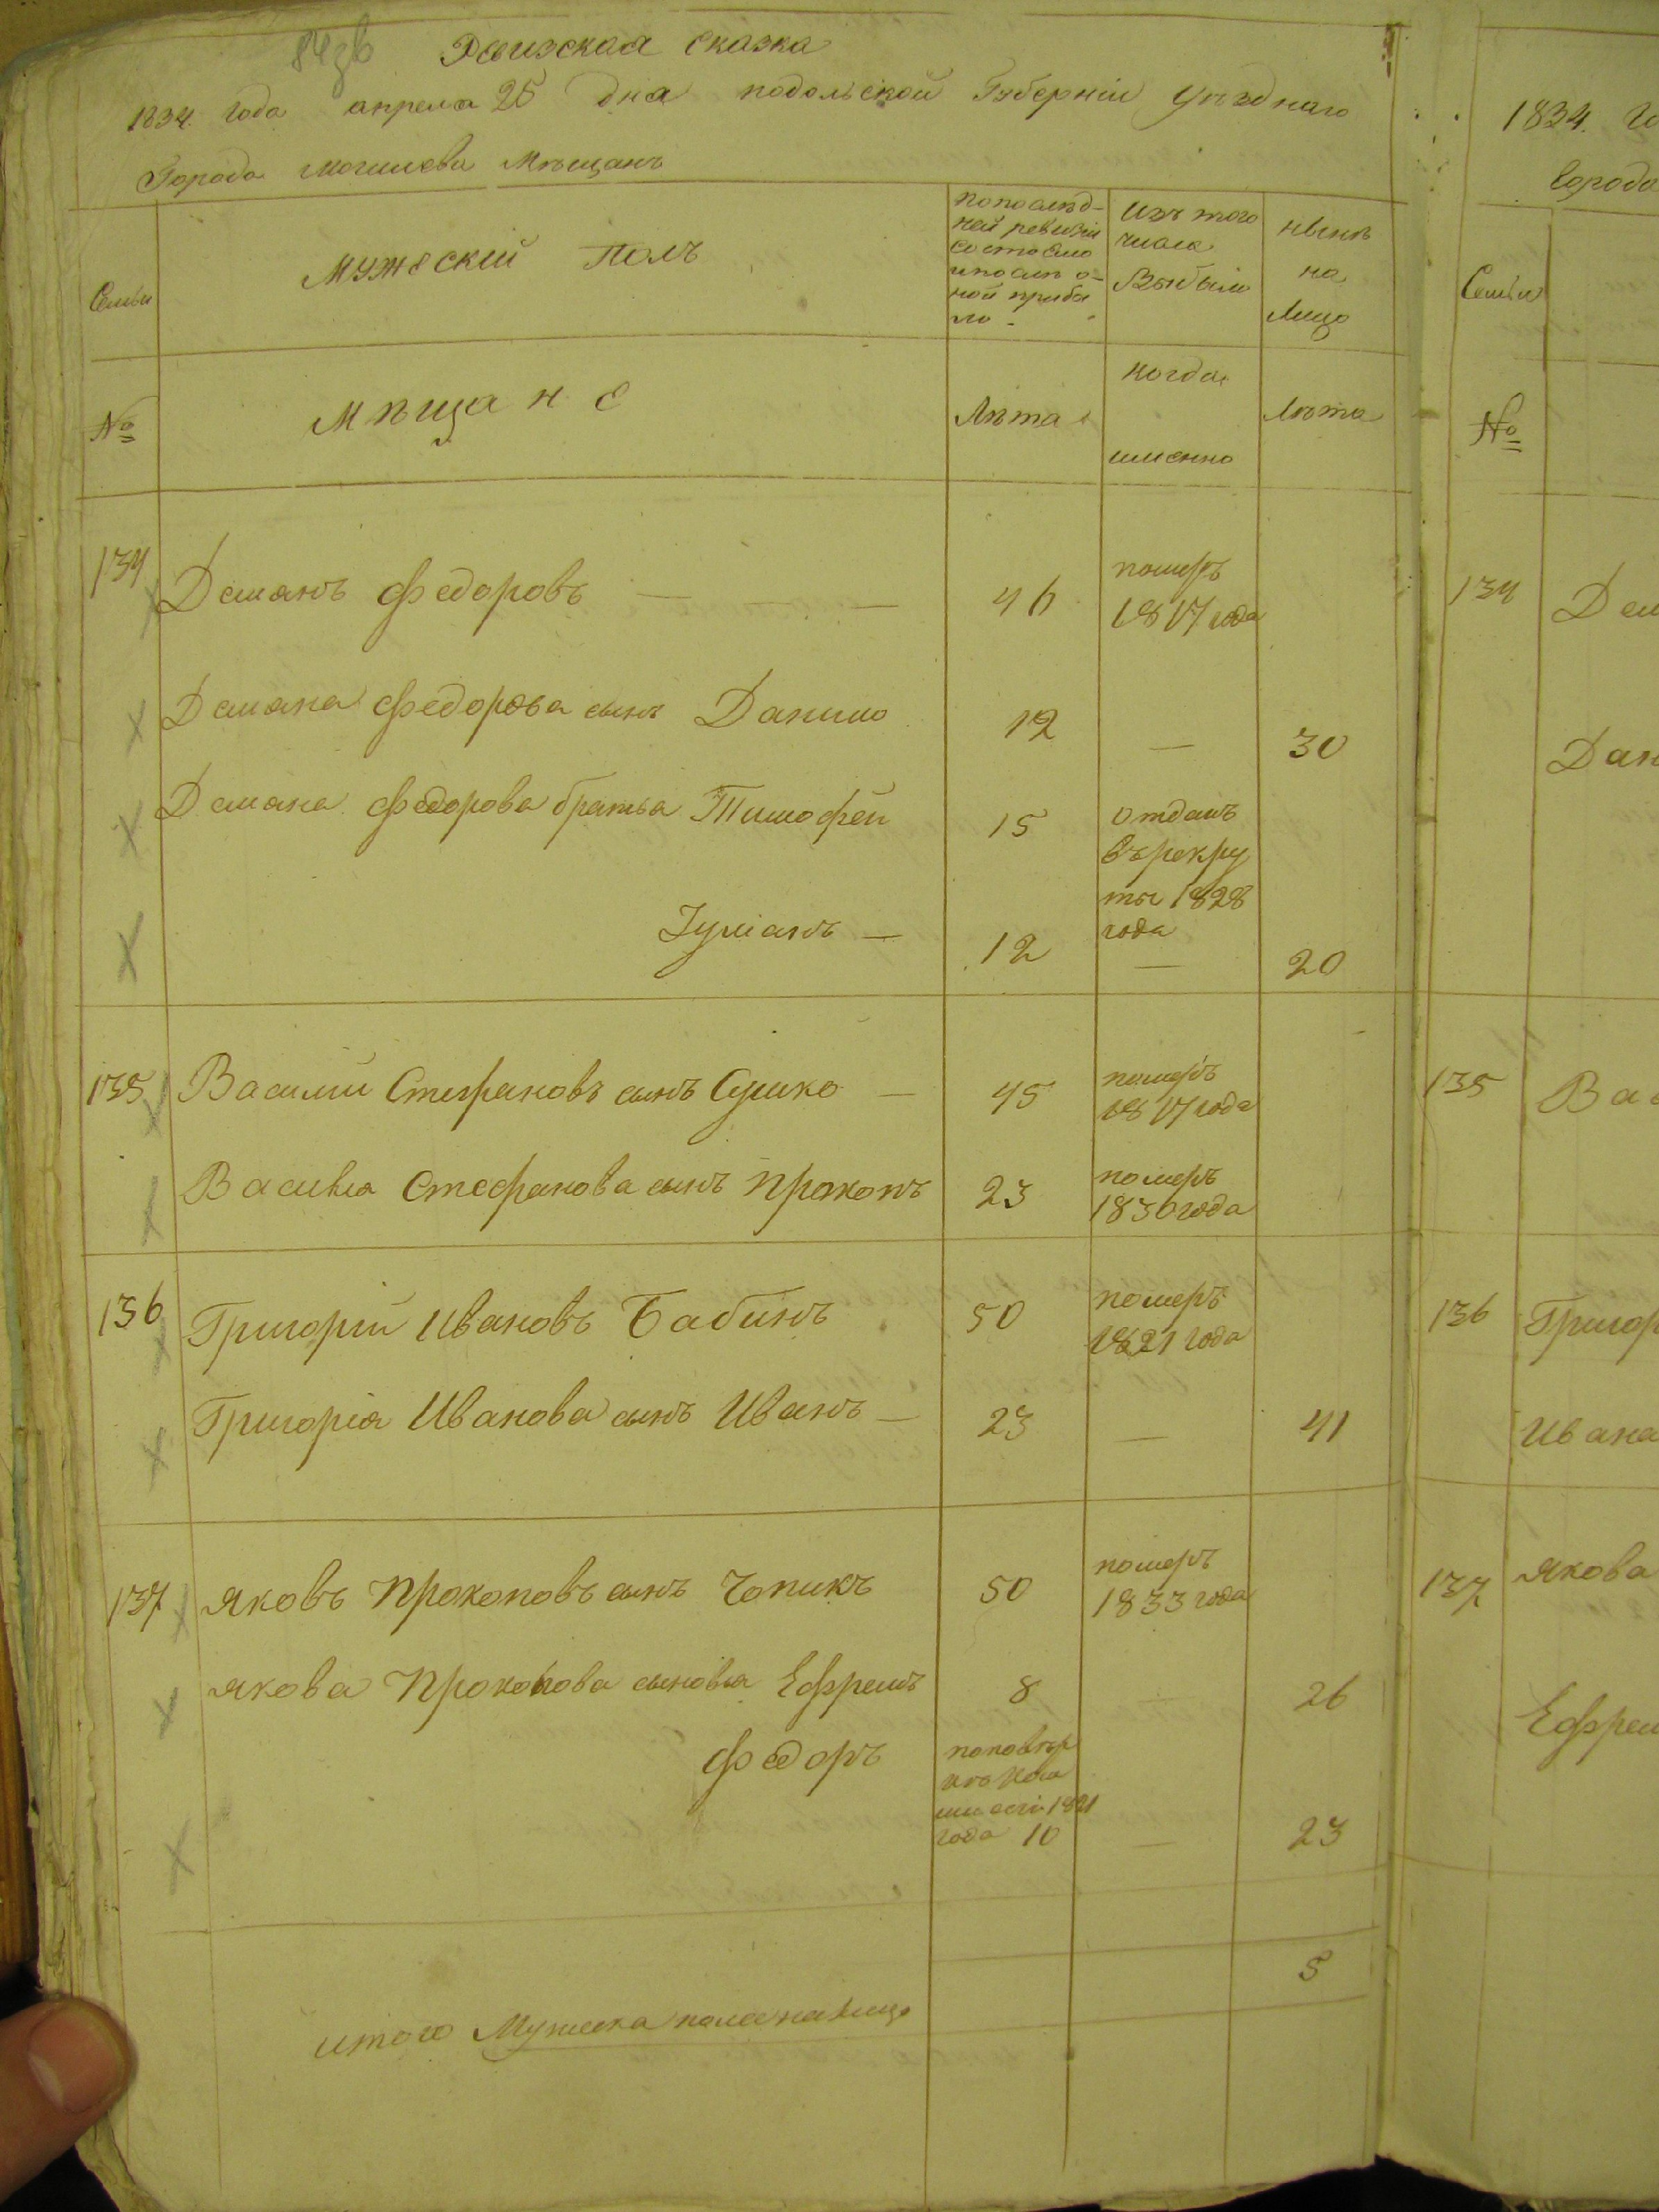 Ревизская сказка
1834 года апреля 25 дня подольской Губерніи уѣзднаго
Города могилева Мѣщанъ
Семьи
Мужескій полъ
по послѣд-
ней ревизіи
состояло
и послѣ о-
ной прибы
ло
Изъ того
числа
Выбыло
нынѣ
на
Лицо
№
Мѣщане
Лѣта
когда
именно
Лѣта
134 Деманъ Федоровъ — — — 46 померъ
1817 года
Демана Федорова сынъ Данило 12 — 30
Демана Федорова братья Тимофей 15 отданъ
въ рекру
ты 1828
года
12 — 20
135 Василий Стефановъ сынъ — 45 померъ
1817 года
Василья Стефанова сынъ Прокопъ 23 померъ
1830 года
136 Григорій Ивановъ Бабинъ 50 померъ
1821 года
Григорія Иванова сынъ Иванъ — 23 — 41
137 Яковъ Прокоповъ сынъ Чопикъ 50 померъ
1833 года
Якова Прокопова сыновья Ефремъ 8 — 26
Федоръ
года 10 — 23
5
итого Мужеска пола налицо
1834. Го
города
Семьи
№
134 Дем
Дан
135 Вас
136 Григор
Ивана
137 Якова
Ефрем